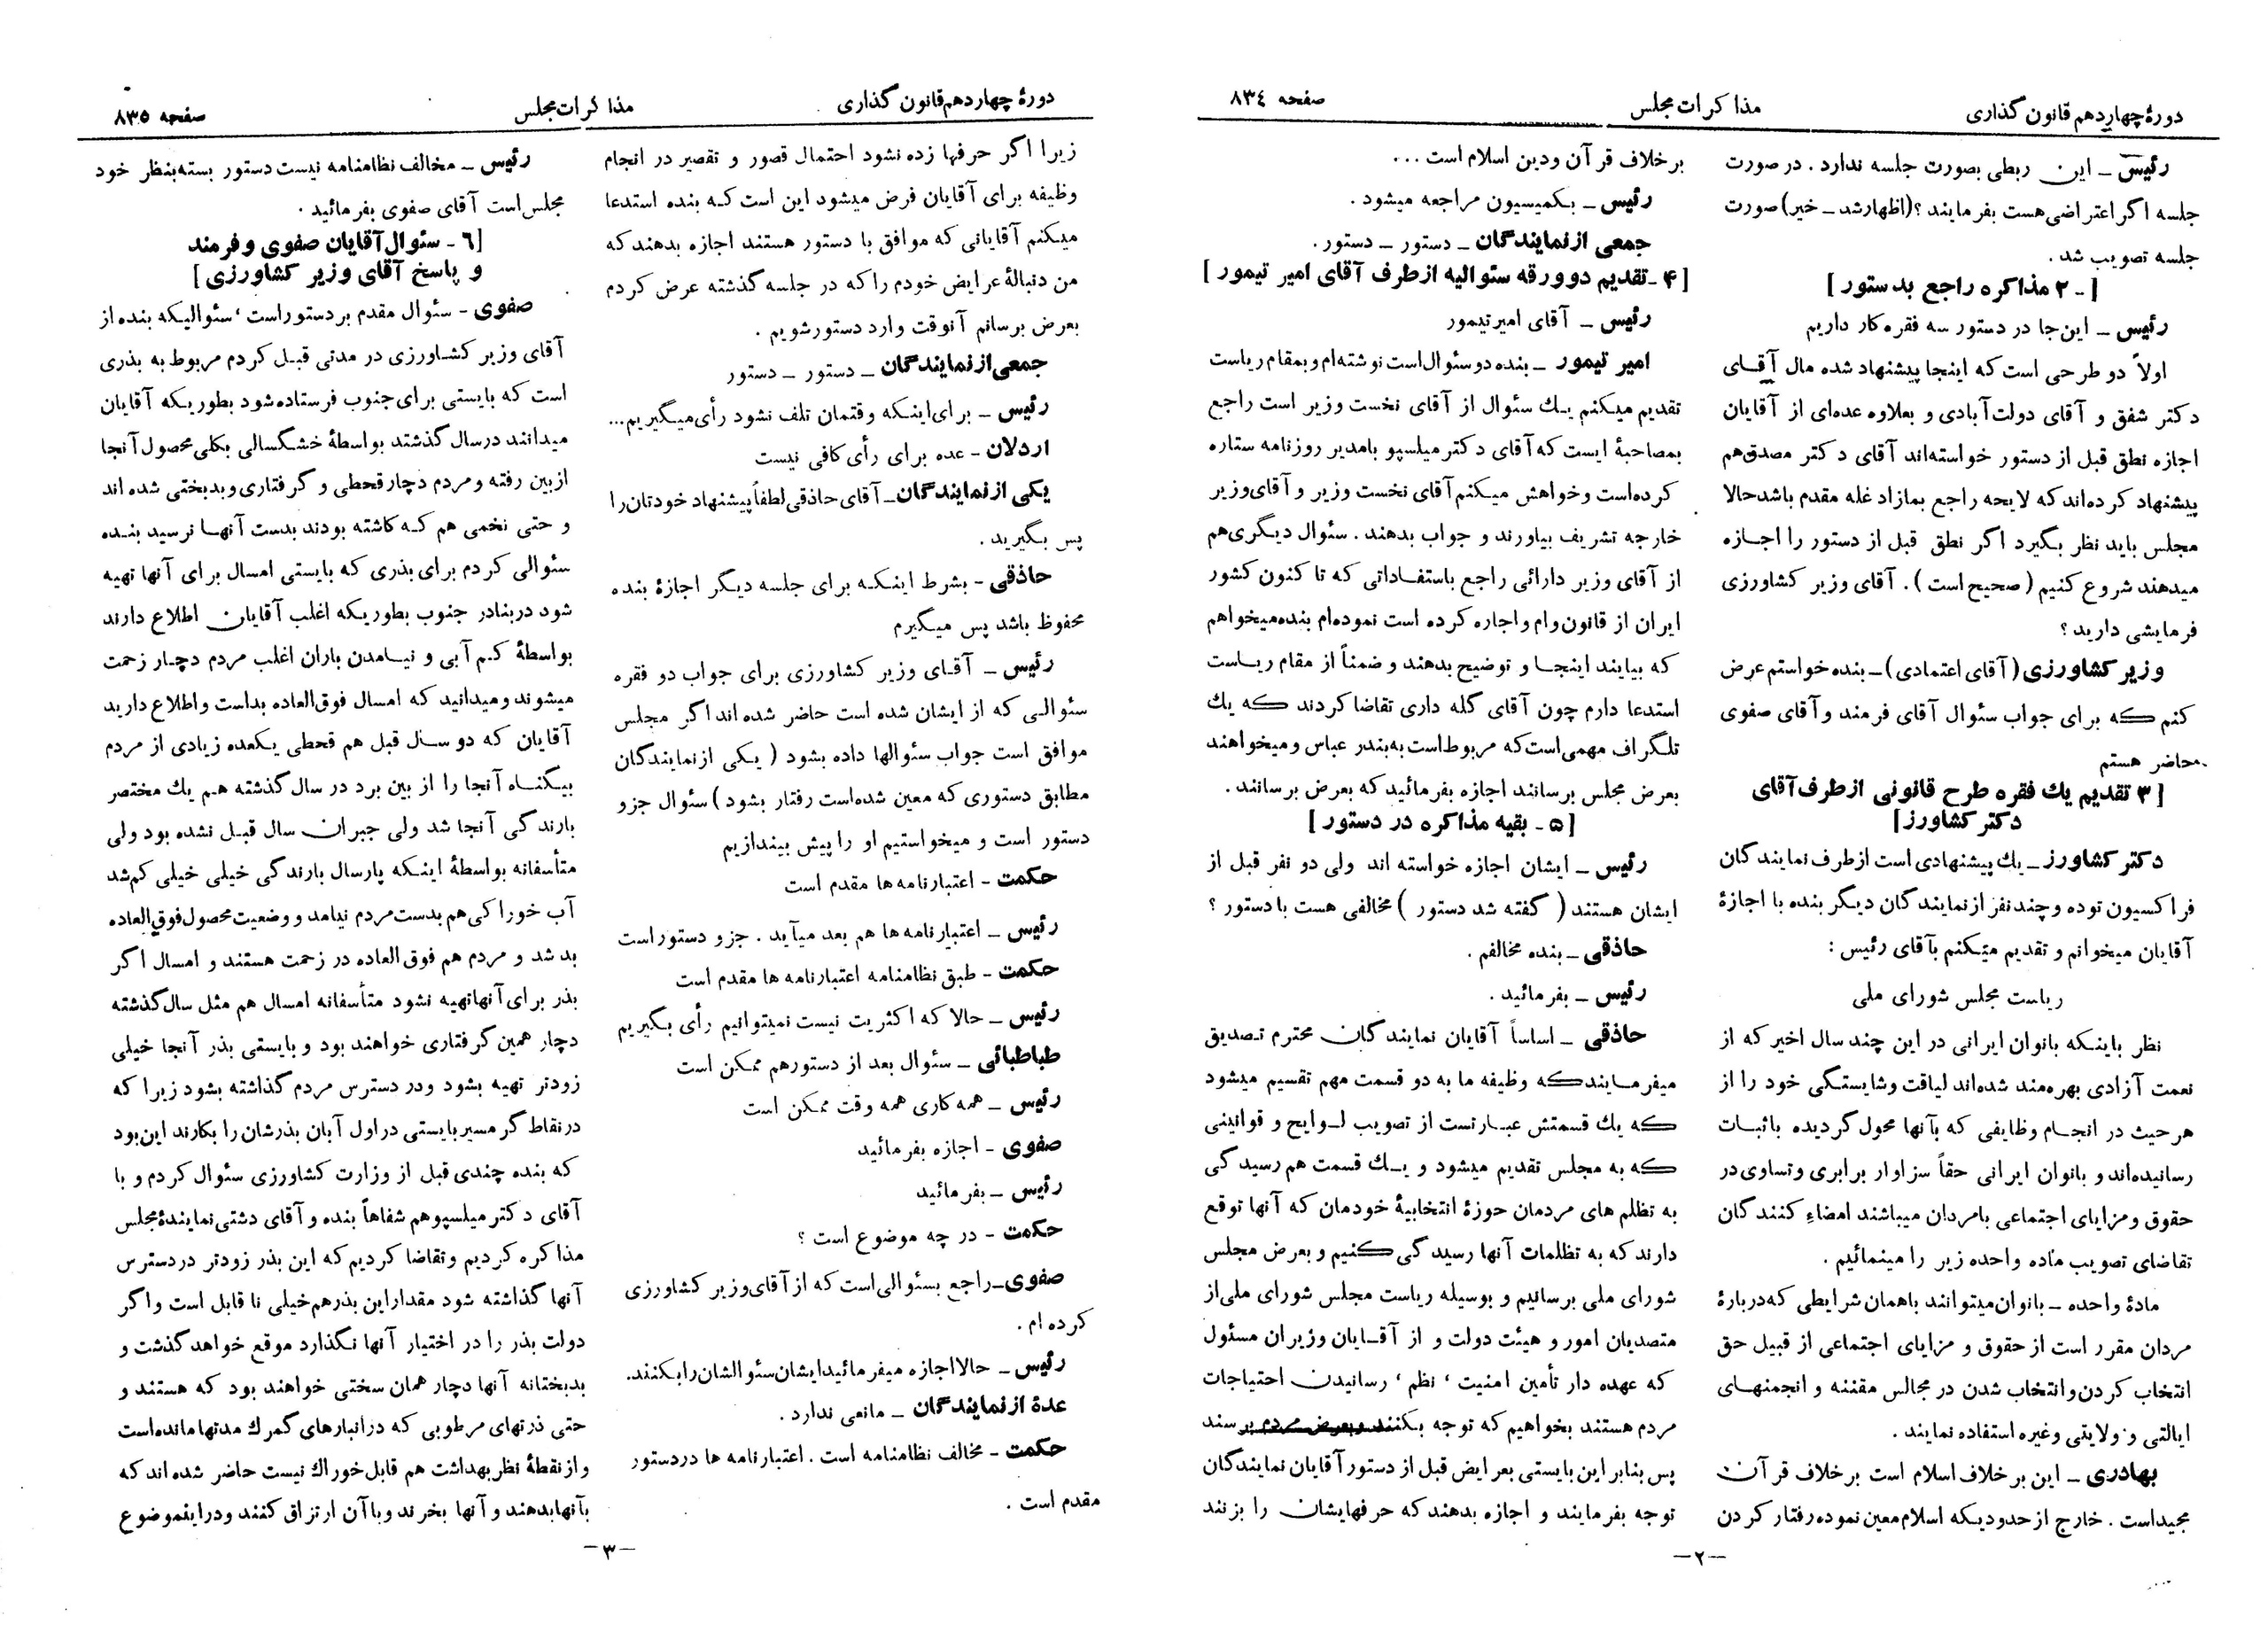 دورهٔ چهاردهم قانون گذاری
مذاکرات مجلس
صفحه ۸۳٤
رئیس ـ این ربطی بصورت جلسه ندارد . در صورت
جلسه اگر اعتراضی هست بفرمایند ؟ (اظهار شد ـ خیر) صورت
جلسه تصویب شد .
[ ـ ۲ مذاکره راجع بدستور ]
رئیس ـ این‌جا در دستور سه فقره کار داریم
اولاً دو طرحی است که اینجا پیشنهاد شده مال آقای
دکتر شفق و آقای دولت آبادی و بعلاوه عده‌ای از آقایان
اجازه نطق قبل از دستور خواسته‌اند آقای دکتر مصدق هم
پیشنهاد کرده‌اند که لایحه راجع بمازاد غله مقدم باشد حالا
مجلس باید نظر بگیرد اگر نطق قبل از دستور را اجازه
میدهند شروع کنیم ( صحیح است ) . آقای وزیر کشاورزی
فرمایشی دارید ؟
وزیر کشاورزی ( آقای اعتمادی ) ـ بنده خواستم عرض
کنم که برای جواب سئوال آقای فرمند و آقای صفوی
حاضر هستم
[ ۳ تقدیم یك فقره طرح قانونی از طرف آقای
دکتر کشاورز]
دکتر کشاورز ـ یك پیشنهادی است از طرف نمایندگان
فراکسیون توده و چند نفر از نمایندگان دیگر بنده با اجازهٔ
آقایان میخوانم و تقدیم میکنم بآقای رئیس :
ریاست مجلس شورای ملی
نظر باینکه بانوان ایرانی در این چند سال اخیر که از
نعمت آزادی بهره‌مند شده‌اند لیاقت وشایستگی خود را از
هر حیث در انجام وظایفی که بآنها محول گردیده باثبات
رسانیده‌اند و بانوان ایرانی حقاً سزاوار برابری وتساوی در
حقوق ومزایای اجتماعی بامردان میباشند امضاء کنندگان
تقاضای تصویب ماده واحده زیر را مینمائیم .
مادهٔ واحده ـ بانوان میتوانند باهمان شرایطی که دربارهٔ
مردان مقرر است از حقوق و مزایای اجتماعی از قبیل حق
انتخاب کردن وانتخاب شدن در مجالس مقننه و انجمنهای
ایالتی و ولایتی وغیره استفاده نمایند .
بهادری ـ این برخلاف اسلام است برخلاف قرآن
مجیداست . خارج از حدودیکه اسلام معین نموده رفتار کردن
برخلاف قرآن ودین اسلام است ...
رئیس ـ بکمیسیون مراجعه میشود .
جمعی از نمایندگان ـ دستور ـ دستور .
[ ۴ ـ تقدیم دو ورقه سئوالیه از طرف آقای امیر تیمور ]
رئیس ـ آقای امیرتیمور
امیر تیمور ـ بنده دو سئوال است نوشته‌ام و بمقام ریاست
تقدیم میکنم یك سئوال از آقای نخست وزیر است راجع
بمصاحبهٔ ایست که آقای دکتر میلسپو بامدیر روزنامه ستاره
کرده‌است و خواهش میکنم آقای نخست وزیر و آقای وزیر
خارجه تشریف بیاورند و جواب بدهند . سئوال دیگری هم
از آقای وزیر دارائی راجع باستفاداتی که تا کنون کشور
ایران از قانون وام واجاره کرده است نموده‌ام بنده میخواهم
که بیایند اینجا و توضیح بدهند و ضمناً از مقام ریاست
استدعا دارم چون آقای گله داری تقاضا کردند که یك
تلگراف مهمی است که مربوط است به بندر عباس و میخواهند
بعرض مجلس برسانند اجازه بفرمائید که بعرض برسانند .
[ ۵ ـ بقیه مذاکره در دستور ]
رئیس ـ ایشان اجازه خواسته اند ولی دو نفر قبل از
ایشان هستند ( گفته شد دستور ) مخالفی هست با دستور ؟
حاذقی ـ بنده مخالفم .
رئیس ـ بفرمائید .
حاذقی ـ اساساً آقایان نمایندگان محترم تصدیق
میفرمایند که وظیفه ما به دو قسمت مهم تقسیم میشود
که یك قسمتش عبارتست از تصویب لوایح و قوانینی
که به مجلس تقدیم میشود و یك قسمت هم رسیدگی
به تظلم های مردمان حوزهٔ انتخابیهٔ خودمان که آنها توقع
دارند که به تظلمات آنها رسیدگی کنیم و بعرض مجلس
شورای ملی برسانیم و بوسیله ریاست مجلس شورای ملی از
متصدیان امور و هیئت دولت و از آقایان وزیران مسئول
که عهده دار تأمین امنیت ، نظم ، رسانیدن احتیاجات
مردم هستند بخواهیم که توجه بکنند وبعرض مردم برسند
پس بنابر این بایستی بعرایض قبل از دستور آقایان نمایندگان
توجه بفرمایند و اجازه بدهند که حرفهایشان را بزنند
ـ۲ـ
دورهٔ چهاردهم قانون گذاری
مذاکرات مجلس
صفحه ۸۳٥
زیرا اگر حرفها زده نشود احتمال قصور و تقصیر در انجام
وظیفه برای آقایان فرض میشود این است که بنده استدعا
میکنم آقایانی که موافق با دستور هستند اجازه بدهند که
من دنبالهٔ عرایض خودم را که در جلسه گذشته عرض کردم
بعرض برسانم آنوقت وارد دستور شویم .
جمعی از نمایندگان ـ دستور ـ دستور
رئیس ـ برای اینکه وقتمان تلف نشود رأی میگیریم...
اردلان ـ عده برای رأی کافی نیست
یکی از نمایندگان ـ آقای حاذقی لطفاً پیشنهاد خودتان را
پس بگیرید .
حاذقی ـ بشرط اینکه برای جلسه دیگر اجازهٔ بنده
محفوظ باشد پس میگیرم
رئیس ـ آقای وزیر کشاورزی برای جواب دو فقره
سئوالی که از ایشان شده است حاضر شده اند اگر مجلس
موافق است جواب سئوالها داده بشود ( یکی از نمایندگان
مطابق دستوری که معین شده‌است رفتار بشود ) سئوال جزو
دستور است و میخواستیم او را پیش بیندازیم
حکمت ـ اعتبارنامه ها مقدم است
رئیس ـ اعتبارنامه ها هم بعد میآید . جزو دستور است
حکمت ـ طبق نظامنامه اعتبارنامه ها مقدم است
رئیس ـ حالا که اکثریت نیست نمیتوانیم رأی بگیریم
طباطبائی ـ سئوال بعد از دستورهم ممکن است
رئیس ـ همه کاری همه وقت ممکن است
صفوی ـ اجازه بفرمائید
رئیس ـ بفرمائید
حکمت ـ در چه موضوع است ؟
صفوی ـ راجع بسئوالی است که از آقای وزیر کشاورزی
کرده ام .
رئیس ـ حالا اجازه میفرمائید ایشان سئوالشان را بکنند.
عدهٔ از نمایندگان ـ مانعی ندارد .
حکمت ـ مخالف نظامنامه است . اعتبارنامه ها در دستور
مقدم است .
رئیس ـ مخالف نظامنامه نیست دستور بسته بنظر خود
مجلس است آقای صفوی بفرمائید .
[ ٦ ـ سئوال آقایان صفوی و فرمند
و پاسخ آقای وزیر کشاورزی ]
صفوی ـ سئوال مقدم بر دستور است ، سئوالیکه بنده از
آقای وزیر کشاورزی در مدتی قبل کردم مربوط به بذری
است که بایستی برای جنوب فرستاده شود بطوریکه آقایان
میدانند در سال گذشته بواسطهٔ خشگسالی بکلی محصول آنجا
از بین رفته و مردم دچار قحطی و گرفتاری وبدبختی شده اند
و حتی تخمی هم که کاشته بودند بدست آنها نرسید بنده
سئوالی کردم برای بذری که بایستی امسال برای آنها تهیه
شود در بنادر جنوب بطوریکه اغلب آقایان اطلاع دارند
بواسطهٔ کم آبی و نیامدن باران اغلب مردم دچار زحمت
میشوند و میدانید که امسال فوق‌العاده بداست و اطلاع دارید
آقایان که دو سال قبل هم قحطی یکعده زیادی از مردم
بیگناه آنجا را از بین برد در سال گذشته هم یك مختصر
بارندگی آنجا شد ولی جبران سال قبل نشده بود ولی
متأسفانه بواسطهٔ اینکه پارسال بارندگی خیلی خیلی کم شد
آب خوراکی هم بدست مردم نیامد و وضعیت محصول فوق‌العاده
بد شد و مردم هم فوق العاده در زحمت هستند و امسال اگر
بذر برای آنها تهیه نشود متأسفانه امسال هم مثل سال گذشته
دچار همین گرفتاری خواهند بود و بایستی بذر آنجا خیلی
زودتر تهیه بشود ودر دسترس مردم گذاشته بشود زیرا که
در نقاط گرمسیر بایستی در اول آبان بذرشان را بکارند این بود
که بنده چندی قبل از وزارت کشاورزی سئوال کردم و با
آقای دکتر میلسپوهم شفاهاً بنده و آقای دشتی نمایندهٔ مجلس
مذاکره کردیم وتقاضا کردیم که این بذر زودتر در دسترس
آنها گذاشته شود مقدار این بذر هم خیلی نا قابل است واگر
دولت بذر را در اختیار آنها نگذارد موقع خواهد گذشت و
بدبختانه آنها دچار همان سختی خواهند بود که هستند و
حتی ذرتهای مرطوبی که در انبارهای گمرك مدتها مانده‌است
و از نقطهٔ نظر بهداشت هم قابل خوراك نیست حاضر شده اند که
بآنها بدهند و آنها بخرند وباآن ارتزاق کنند ودراینموضوع
ـ۳ـ